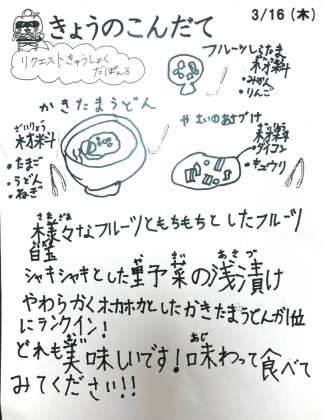 きょうのこんだて
3/16(木)
リクエストきゅうしょく
だぽん♪
フルーツしらたま
材料
・みかん
・りんご
かきたまうどん
ざいりょう
材料
・たまご
・うどん
・ねぎ
やさいのあさづけ
材料
・ダイコン
・キュウリ
さまざま
様々なフルーツともちもちとしたフルーツ
白玉
やさい あさづ
シャキシャキとした野菜の浅漬け
やわらかくホカホカとしたかきたまうどんが1位
にランクイン!
どれも美味しいです!味わって食べて
みてください!!